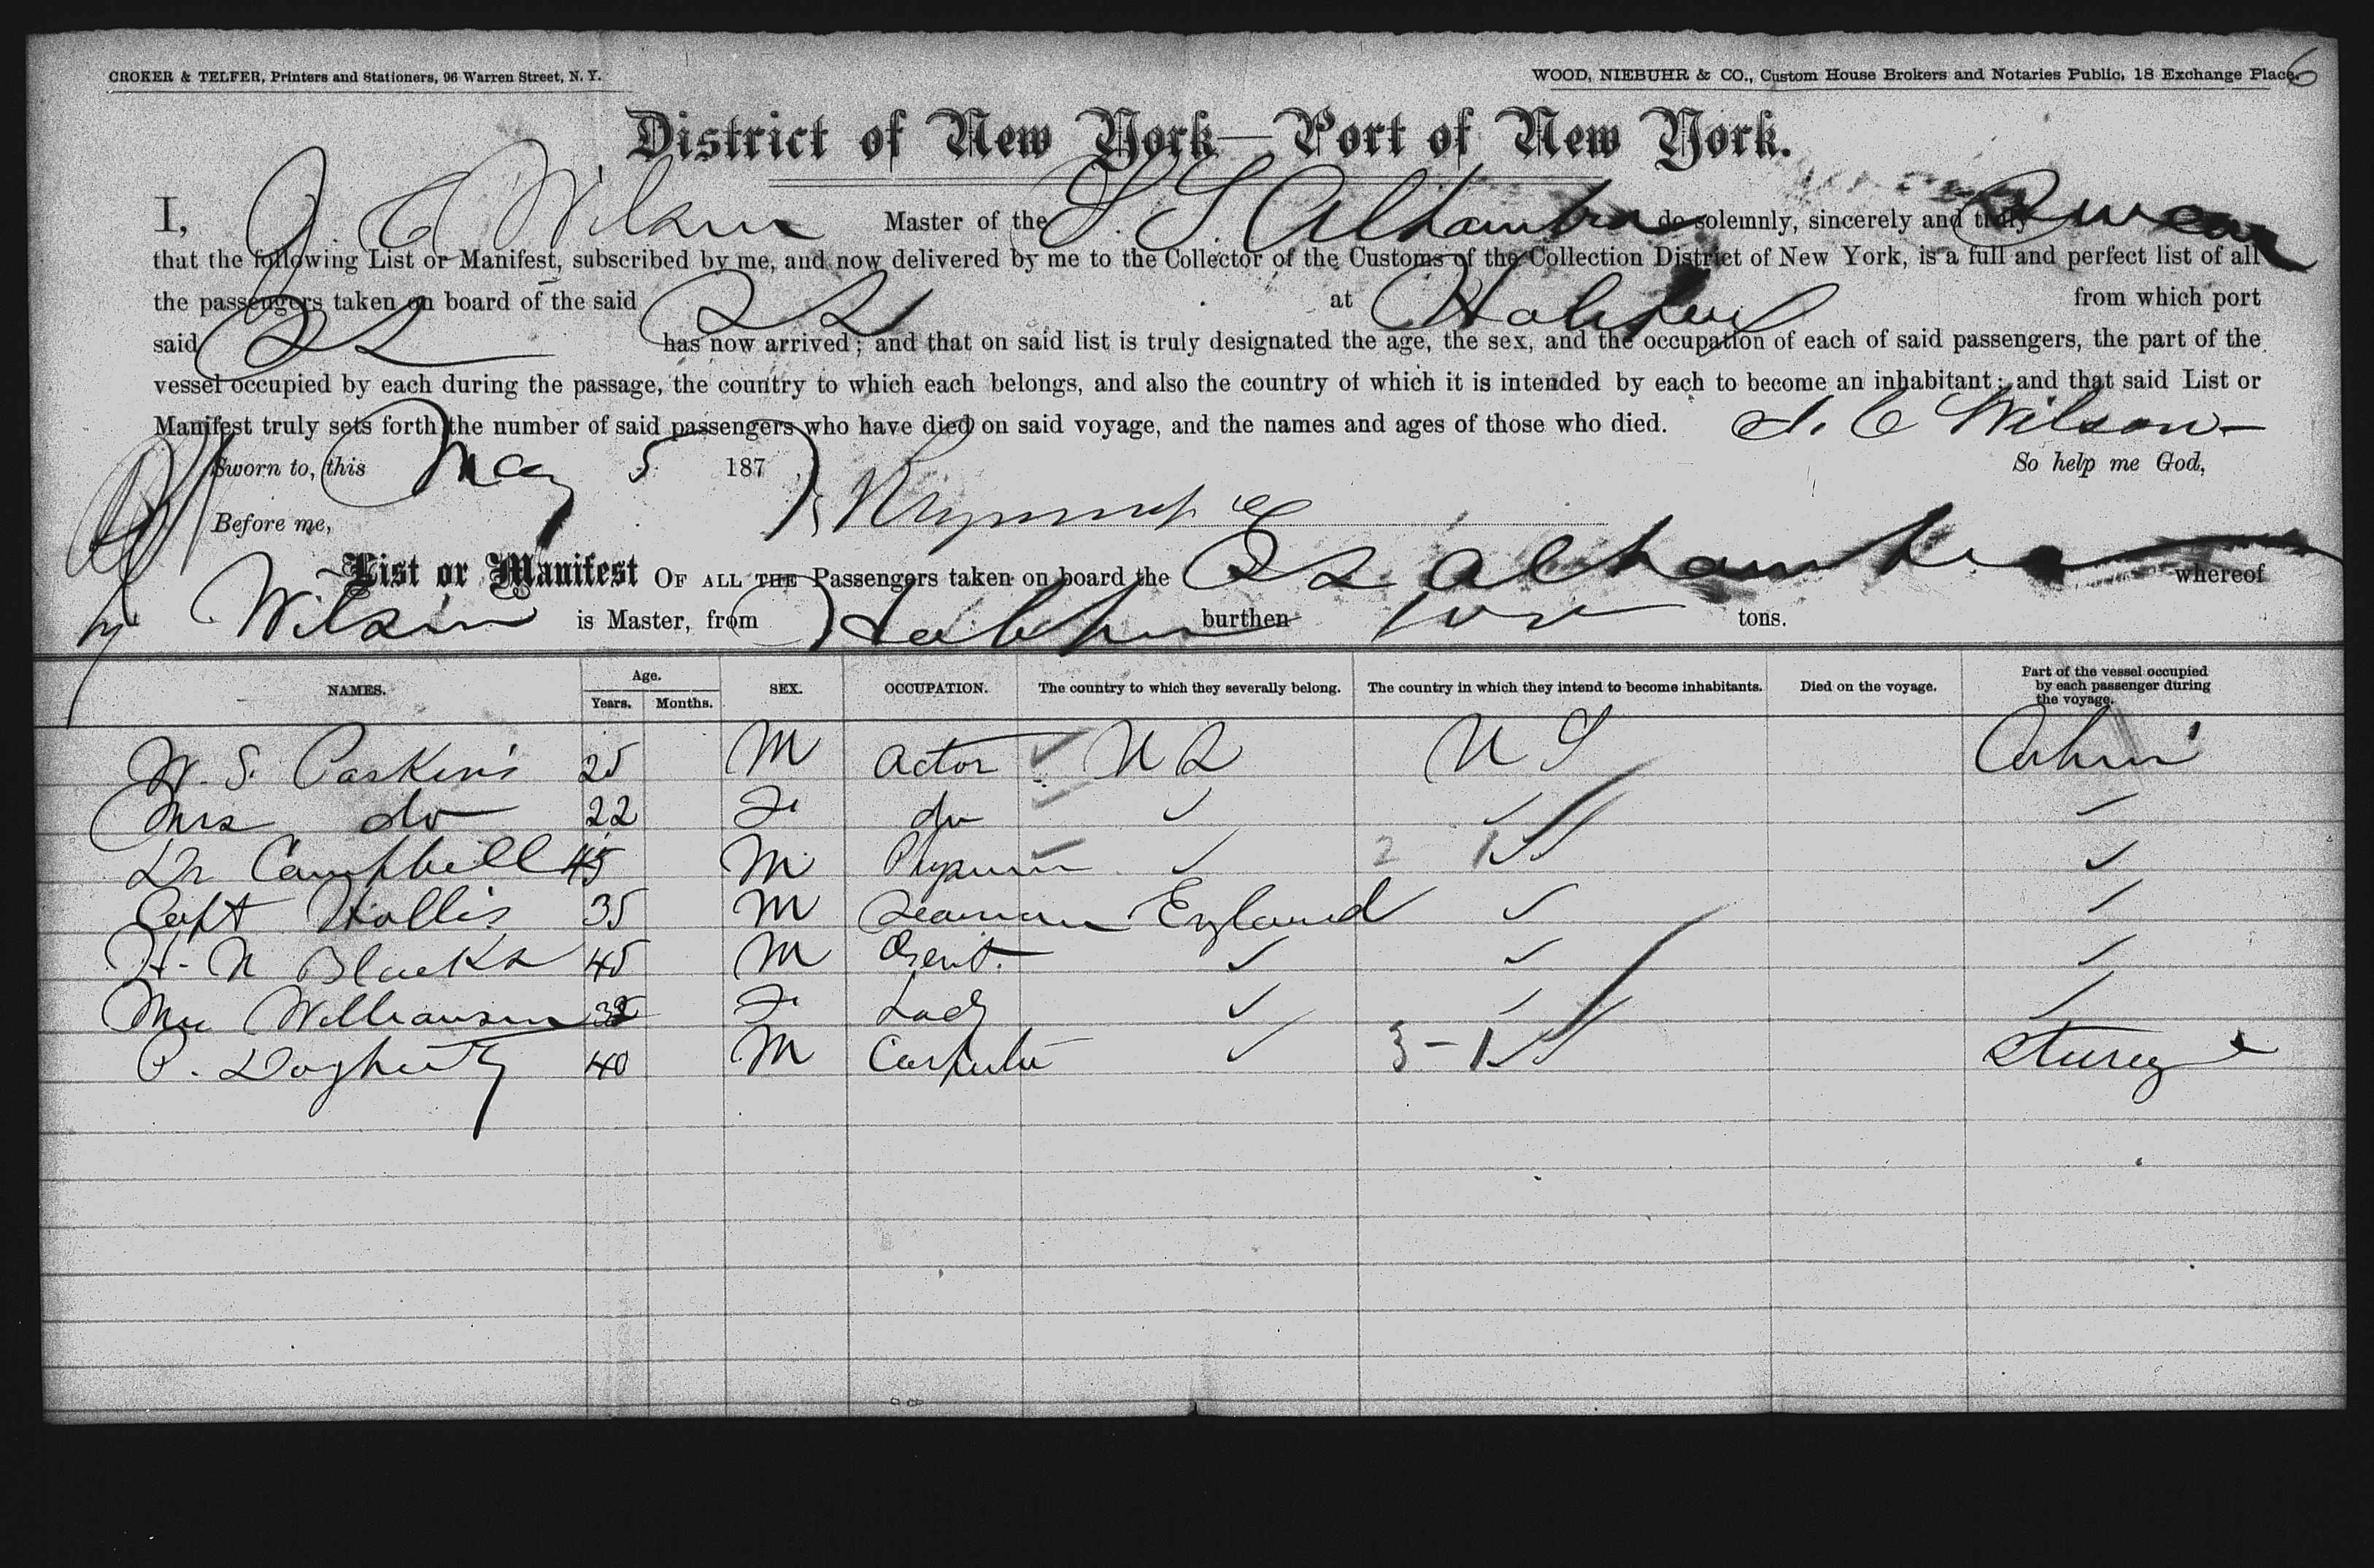 CROKER & TELFER, Printers and Stationers, 96 Warren Street, N. Y.
WOOD, NIEBUHR & CO., Custom House Brokers and Notaries Public, 18 Exchange Place.
6
District of New York—Port of New York.
I, J. E Wilson Master of the S. S. Alhambra do solemnly, sincerely and truly Swear
that the following List or Manifest, subscribed by me, and now delivered by me to the Collector of the Customs of the Collection District of New York, is a full and perfect list of all
the passengers taken on board of the said SS at Halifax from which port
said SS has now arrived; and that on said list is truly designated the age, the sex, and the occupation of each of said passengers, the part of the
vessel occupied by each during the passage, the country to which each belongs, and also the country of which it is intended by each to become an inhabitant; and that said List or
Manifest truly sets forth the number of said passengers who have died on said voyage, and the names and ages of those who died. J. E Wilson
Sworn to, this May 5 187 So help me God,
Before me,
List or Manifest OF ALL THE Passengers taken on board the SS Alhambra whereof
Wilson is Master, from Halifax burthen tons.
NAMES. Age. Years. Months. SEX. OCCUPATION. The country to which they severally belong. The country in which they intend to become inhabitants. Died on the voyage. Part of the vessel occupied by each passenger during the voyage.
W. S. Paskins 25 M Actor U S U S Cabin
Mrs do 22 F do ✓ ✓ ✓
Dr Campbell 45 M ✓ ✓
Capt Hollis 35 M Seaman England ✓ ✓
H. N Blacks 45 M Gent. ✓ ✓ ✓
Mrs Williamson F Lady ✓ ✓ ✓
P. Dogherty 40 M Carpenter ✓ 3-1 Steerage